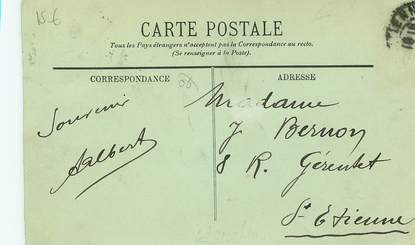 15 €
CARTE POSTALE
Tous les Pays étrangers n'acceptent pas la Correspondance au recto.
(Se renseigner à la Poste).
CORRESPONDANCE
ADRESSE
Souvenir
Albert
Madame
J Bernon
8 R. Gérentet
St Etienne